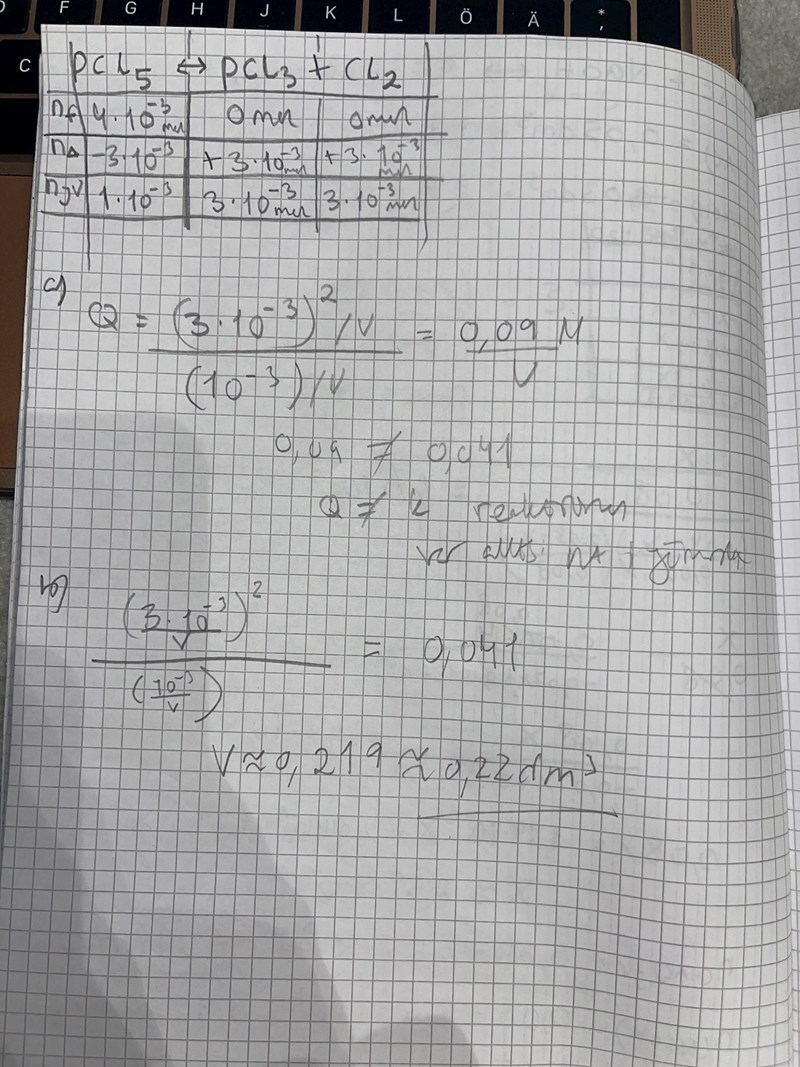 F G H J K L Ö Ä * ,
C
PCL5 ↔ PCL3 + CL2
nf 4·10^-3 mol 0 mol 0 mol
n∆ -3·10^-3 +3·10^-3 mol +3·10^-3 mol
njv 1·10^-3 3·10^-3 mol 3·10^-3 mol
a)
Q = (3·10^-3)^2/V / (10^-3)/V = 0,09 M / V
0,09 ≠ 0,041
Q ≠ k reaktionen
är alltså
b)
(3·10^-3 / V)^2 / (10^-3 / V) = 0,041
V ≈ 0,219 ≈ 0,22 dm^3